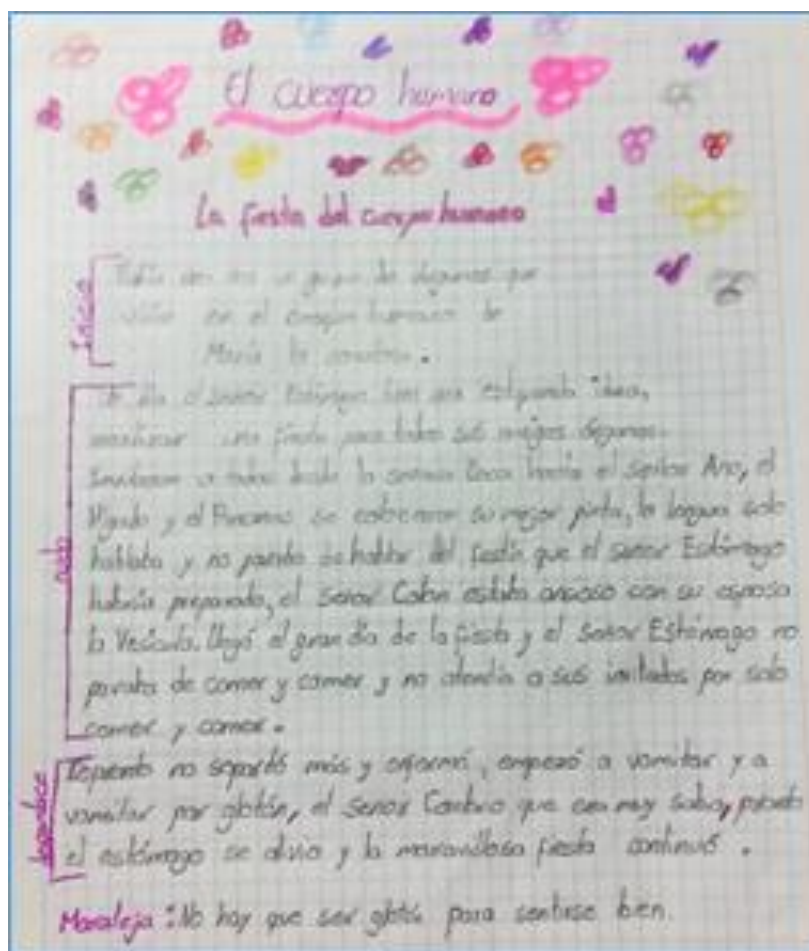 El cuerpo humano
La fiesta del cuerpo humano
Inicio
un grupo de órganos que
en el cuerpo humano de
María la
nudo
día el señor Estómago tuvo una estupenda idea,
una fiesta para todos sus amigos órganos.
Invitaron a todos desde la señora Boca hasta el señor Ano, el
Hígado y el Páncreas se colocaron su mejor pinta, la lengua solo
hablaba y no paraba de hablar del festín que el señor Estómago
habría preparado, el señor Colon estaba ansioso con su esposa
la Vesícula. Llegó el gran día de la fiesta y el señor Estómago no
paraba de comer y comer y no atendía a sus invitados por solo
comer y comer.
desenlace
no soportó más y enfermó, empezó a vomitar y a
vomitar por glotón, el señor que era muy sabio,
el estómago se alivio y la maravillosa fiesta continuó.
Moraleja: No hay que ser glotón para sentirse bien.